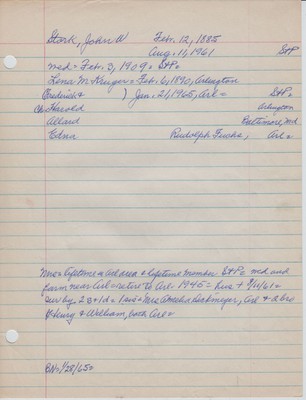 Stork, John W Feb. 12, 1885
Aug. 11, 1961 StP
md = Feb. 3, 1909 = StPs
Lena M. Kruger = Feb. 6, 1890, Arlington
Frederick & ) Jan. 21, 1965, Arl = StPs
Ch: Harold Arlington
Allard Baltimore, Md
Edna Rudolph Fuchs, Arl =
Mr = lifetime in Arl area & lifetime member StPs md and
farm near Arl = retire to Arl. 1945 = hus + 8/11/61 =
sur by 2s + 1d = 1 sis = Mrs Amelia Dickmeyer, Arl & 2 bro
Henry & William, both Arl =
BN = 1/28/65 =